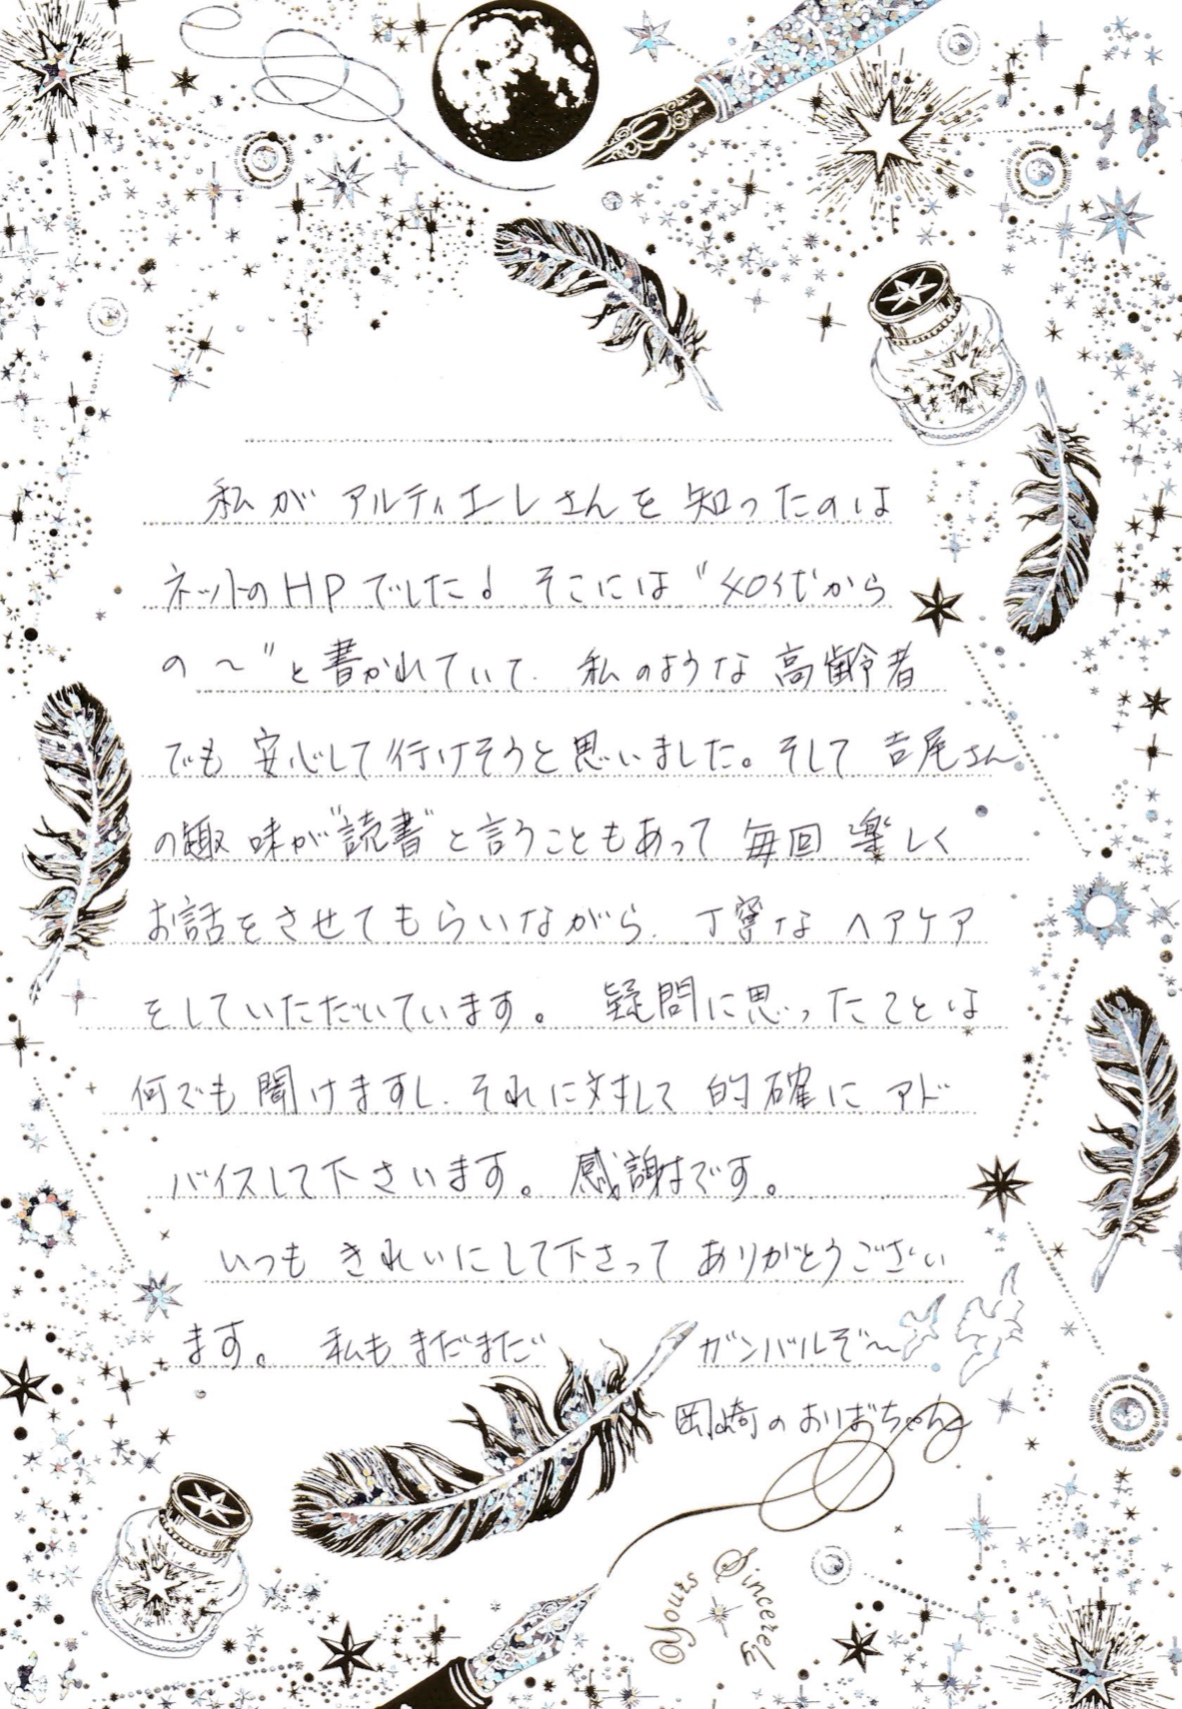 私が アルティエーレさんを 知ったのは
ネットのHPでした♩ そこには“40代から
の〜”と書かれていて、私のような高齢者
でも 安心して行けそうと思いました。そして 吉尾さん
の趣味が“読書”と言うこともあって 毎回 楽しく
お話をさせてもらいながら、丁寧な ヘアケア
をしていただいています。 疑問に思ったことは
何でも 聞けますし、それに対して 的確に アド
バイスして下さいます。感謝です。
いつも きれいにして下さって ありがとうござい
ます。 私も まだまだ ガンバルぞ〜
岡崎の おばちゃん
Yours Sincerely